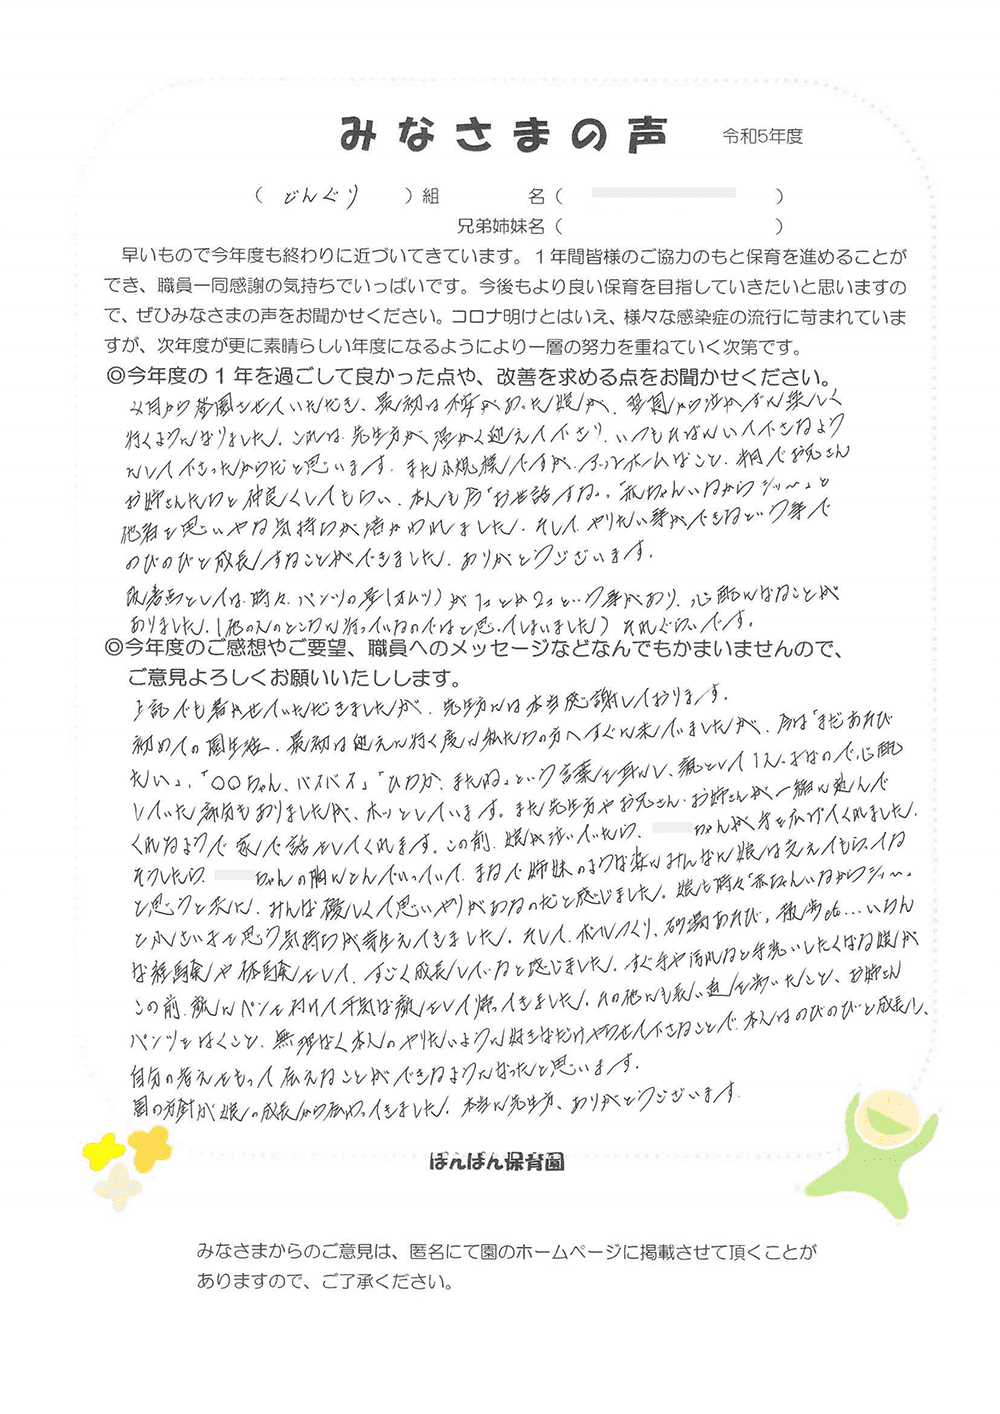 みなさまの声 令和5年度
( どんぐり )組 名( )
兄弟姉妹名( )
早いもので今年度も終わりに近づいてきています。1年間皆様のご協力のもと保育を進めることが
でき、職員一同感謝の気持ちでいっぱいです。今後もより良い保育を目指していきたいと思いますの
で、ぜひみなさまの声をお聞かせください。コロナ明けとはいえ、様々な感染症の流行に苛まれていま
すが、次年度が更に素晴らしい年度になるようにより一層の努力を重ねていく次第です。
◎今年度の1年を過ごして良かった点や、改善を求める点をお聞かせください。
から登園させていただき、最初は不安があった娘が、登園から泣かずに楽しく
行くようになりました。これは、先生方が温かく迎えて下さり、いつもそばにいて下さるよう
にして下さったからだと思います。また小規模ですが、アットホームなこと、栁でお兄さん
お姉さんたちと仲良くしてもらい、本人も「お世話する」、「赤ちゃんいるからシッ〜」と
他者を思いやる気持ちが培かわれました。そして、やりたい事ができるという事で
のびのびと成長することができました。ありがとうございます。
改善点としては、時々、パンツの事(オムツ)が1コとか2コという事があり、心配になることが
ありました。(他の人のところに行っているのではと思ってしまいました)それぐらいです。
◎今年度のご感想やご要望、職員へのメッセージなどなんでもかまいませんので、
ご意見よろしくお願いいたしします。
上記でも書かせていただきましたが、先生方には本当感謝しております。
初めての園生活、最初は迎えに行く度に私たちの方へすぐに来ていましたが、今は「まだあそび
たい」、「○○ちゃん、バイバイ」「ひわか、またね」という言葉を耳にし、親として1人っ子なので心配
していた部分もありましたが、ホッとしています。また先生方やお兄さん・お姉さんが一緒に遊んで
くれるようで家で話をしてくれます。この前、娘が泣いていたら、ちゃんが手を広げてくれました。
そうしたら、ちゃんの胸にとんでいっていて、まるで姉妹のような姿にみんなに娘は支えてもらっている
と思うと共に、みんな優しくて思いやりがあるのだと感じました。娘も時々「赤ちゃんいるからシッ〜」
と小さい子を思う気持ちが芽生えてきました。そして、ボールつくり、砂場あそび、散歩etc…いろん
な経験や体験をして、すごく成長していると感じました。すぐ手や汚れると手洗いしたくなる娘が
この前、靴にペンを付けて平気な顔をして帰ってきました。その他にも長い道を歩いたこと、お姉さん
パンツをはくこと、無理なく本人のやりたいように好きなだけやらせて下さることで、本人はのびのびと成長し、
自分の考えをもって伝えることができるようになったと思います。
園の方針が娘の成長から伝わってきました。本当に先生方、ありがとうございます。
ぽんぽん保育園
みなさまからのご意見は、匿名にて園のホームページに掲載させて頂くことが
ありますので、ご了承ください。